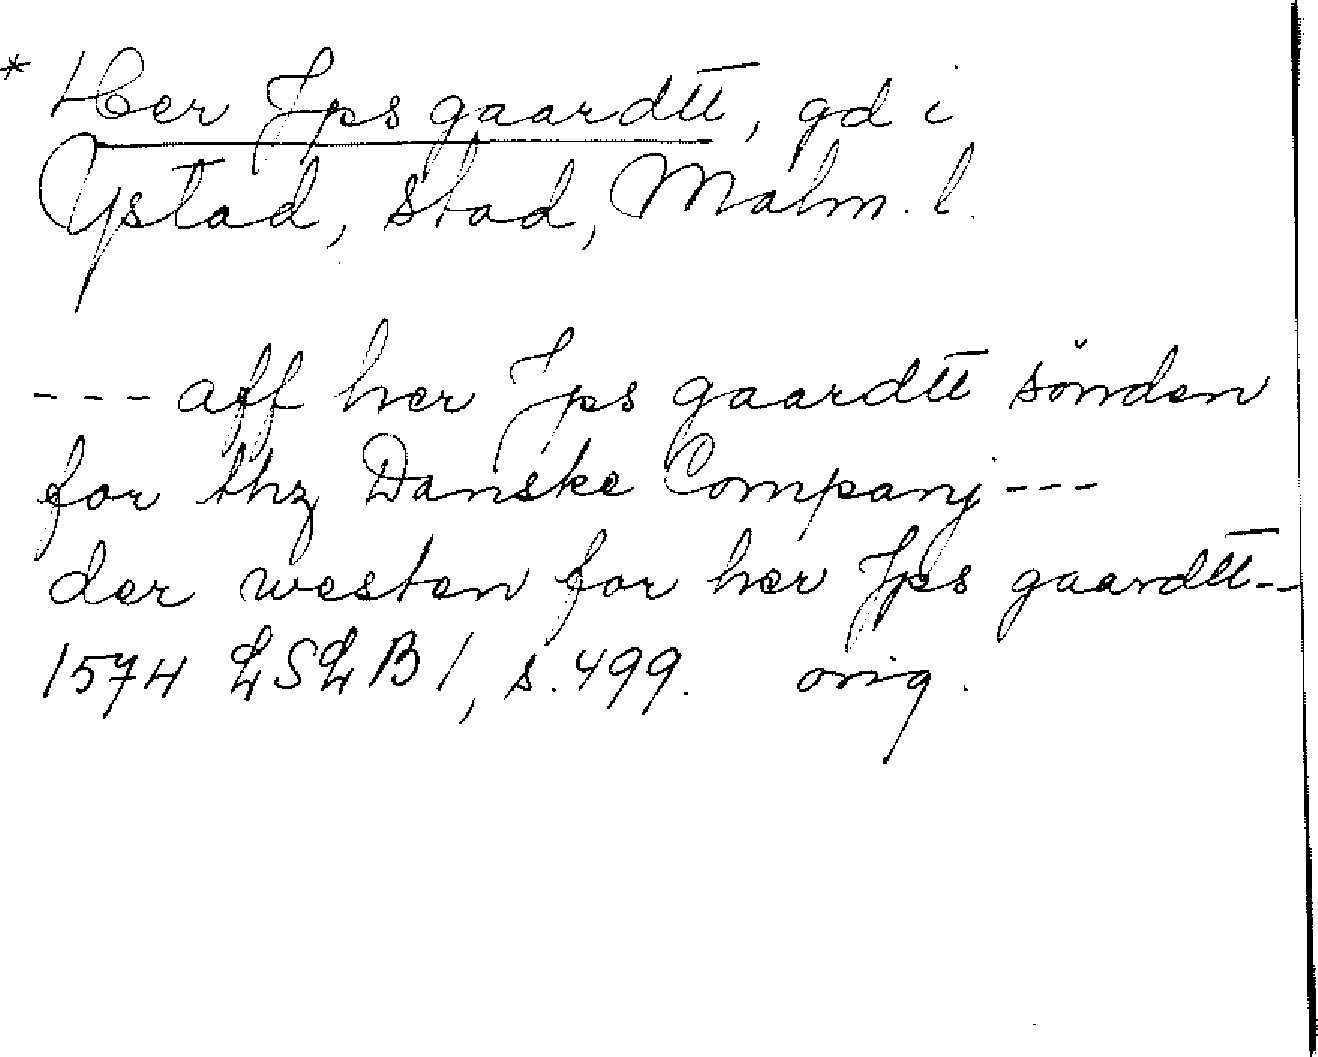 * Her Jps gaardtt, gd i
Ystad, stad, Malm. l.
--- aff her Jps gaardtt sönden
for thz Danske Companj ---
der westen for her Jps gaardtt --
1574 LSLB 1, s. 499. orig.